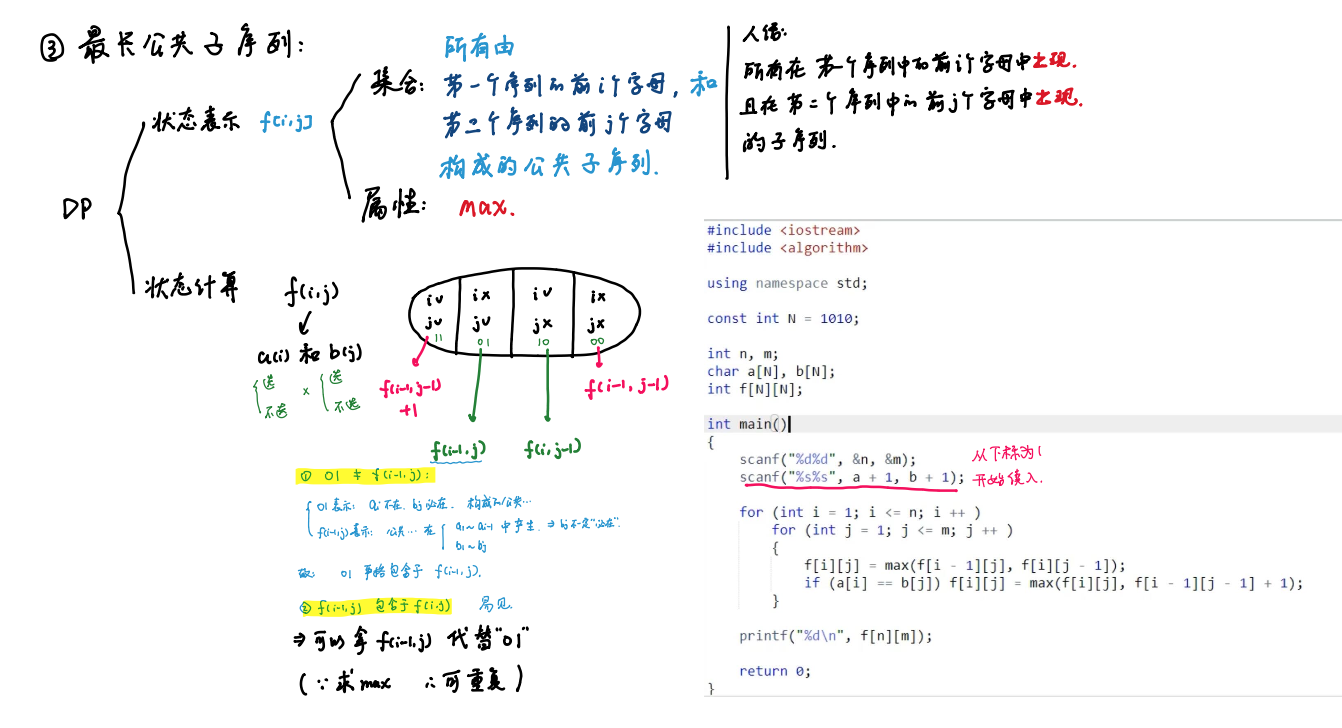 ③ 最长公共子序列:
DP
状态表示 f[i,j]
集合:
所有由
第一个序列的前i个字母, 和
第二个序列的前j个字母
构成的公共子序列.
属性: max.
人话:
所有在第一个序列中的前i个字母中出现.
且在第二个序列中的前j个字母中出现.
的子序列.
状态计算 f(i,j)
a(i) 和 b(j)
选 × 选
不选 不选
i∨ i× i∨ i×
j∨ j∨ j× j×
11 01 10 00
f(i-1,j-1)
+1
f(i-1,j-1)
f(i-1,j) f(i,j-1)
① 01 ≠ f(i-1,j):
01表示: ai不在, bj必在, 构成的公共…
f(i-1,j)表示: 公共… 在 a1~ai-1 中产生. ⇒ bj不一定"必在".
b1~bj
故: 01 严格包含于 f(i-1,j).
② f(i-1,j) 包含于 f(i,j) 易见.
⇒ 可以拿 f(i-1,j) 代替"01"
(∵求max ∴可重复)
#include <iostream>
#include <algorithm>
using namespace std;
const int N = 1010;
int n, m;
char a[N], b[N];
int f[N][N];
int main()
{
scanf("%d%d", &n, &m);
scanf("%s%s", a + 1, b + 1);
从下标为1
开始读入.
for (int i = 1; i <= n; i ++ )
for (int j = 1; j <= m; j ++ )
{
f[i][j] = max(f[i - 1][j], f[i][j - 1]);
if (a[i] == b[j]) f[i][j] = max(f[i][j], f[i - 1][j - 1] + 1);
}
printf("%d\n", f[n][m]);
return 0;
}